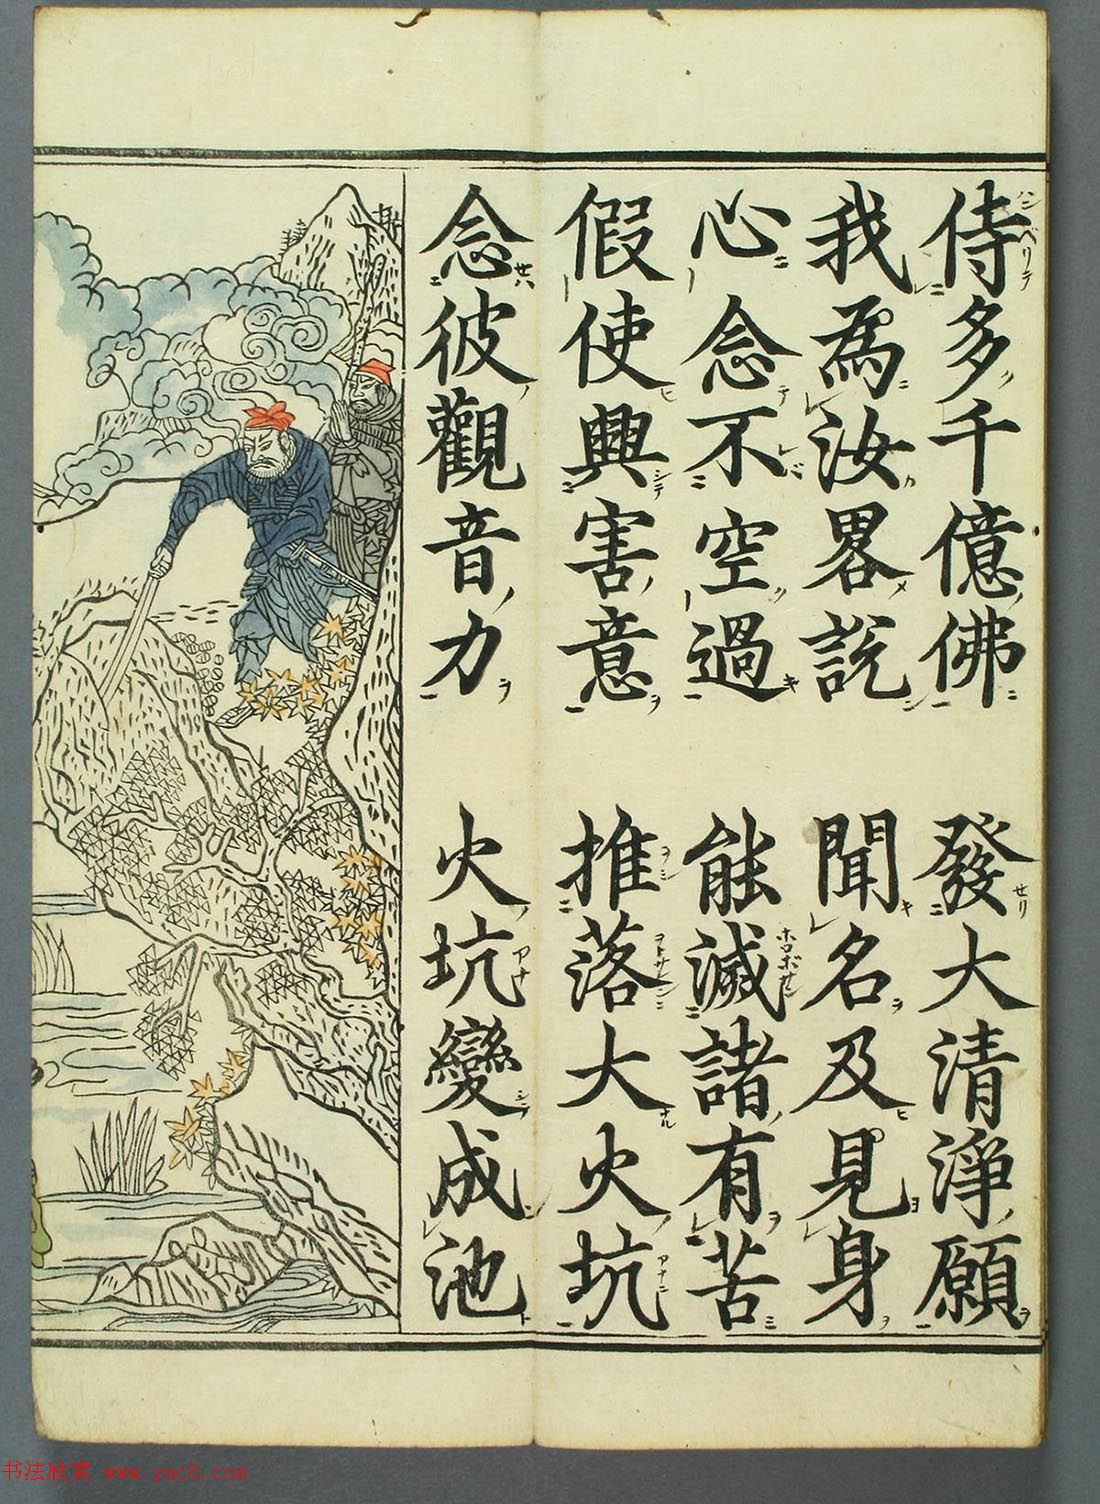 侍多千億佛 發大清淨願
我為汝畧說 聞名及見身
心念不空過 能滅諸有苦
假使興害意 推落大火坑
念彼觀音力 火坑變成池
书法欣赏 www.yac8.com